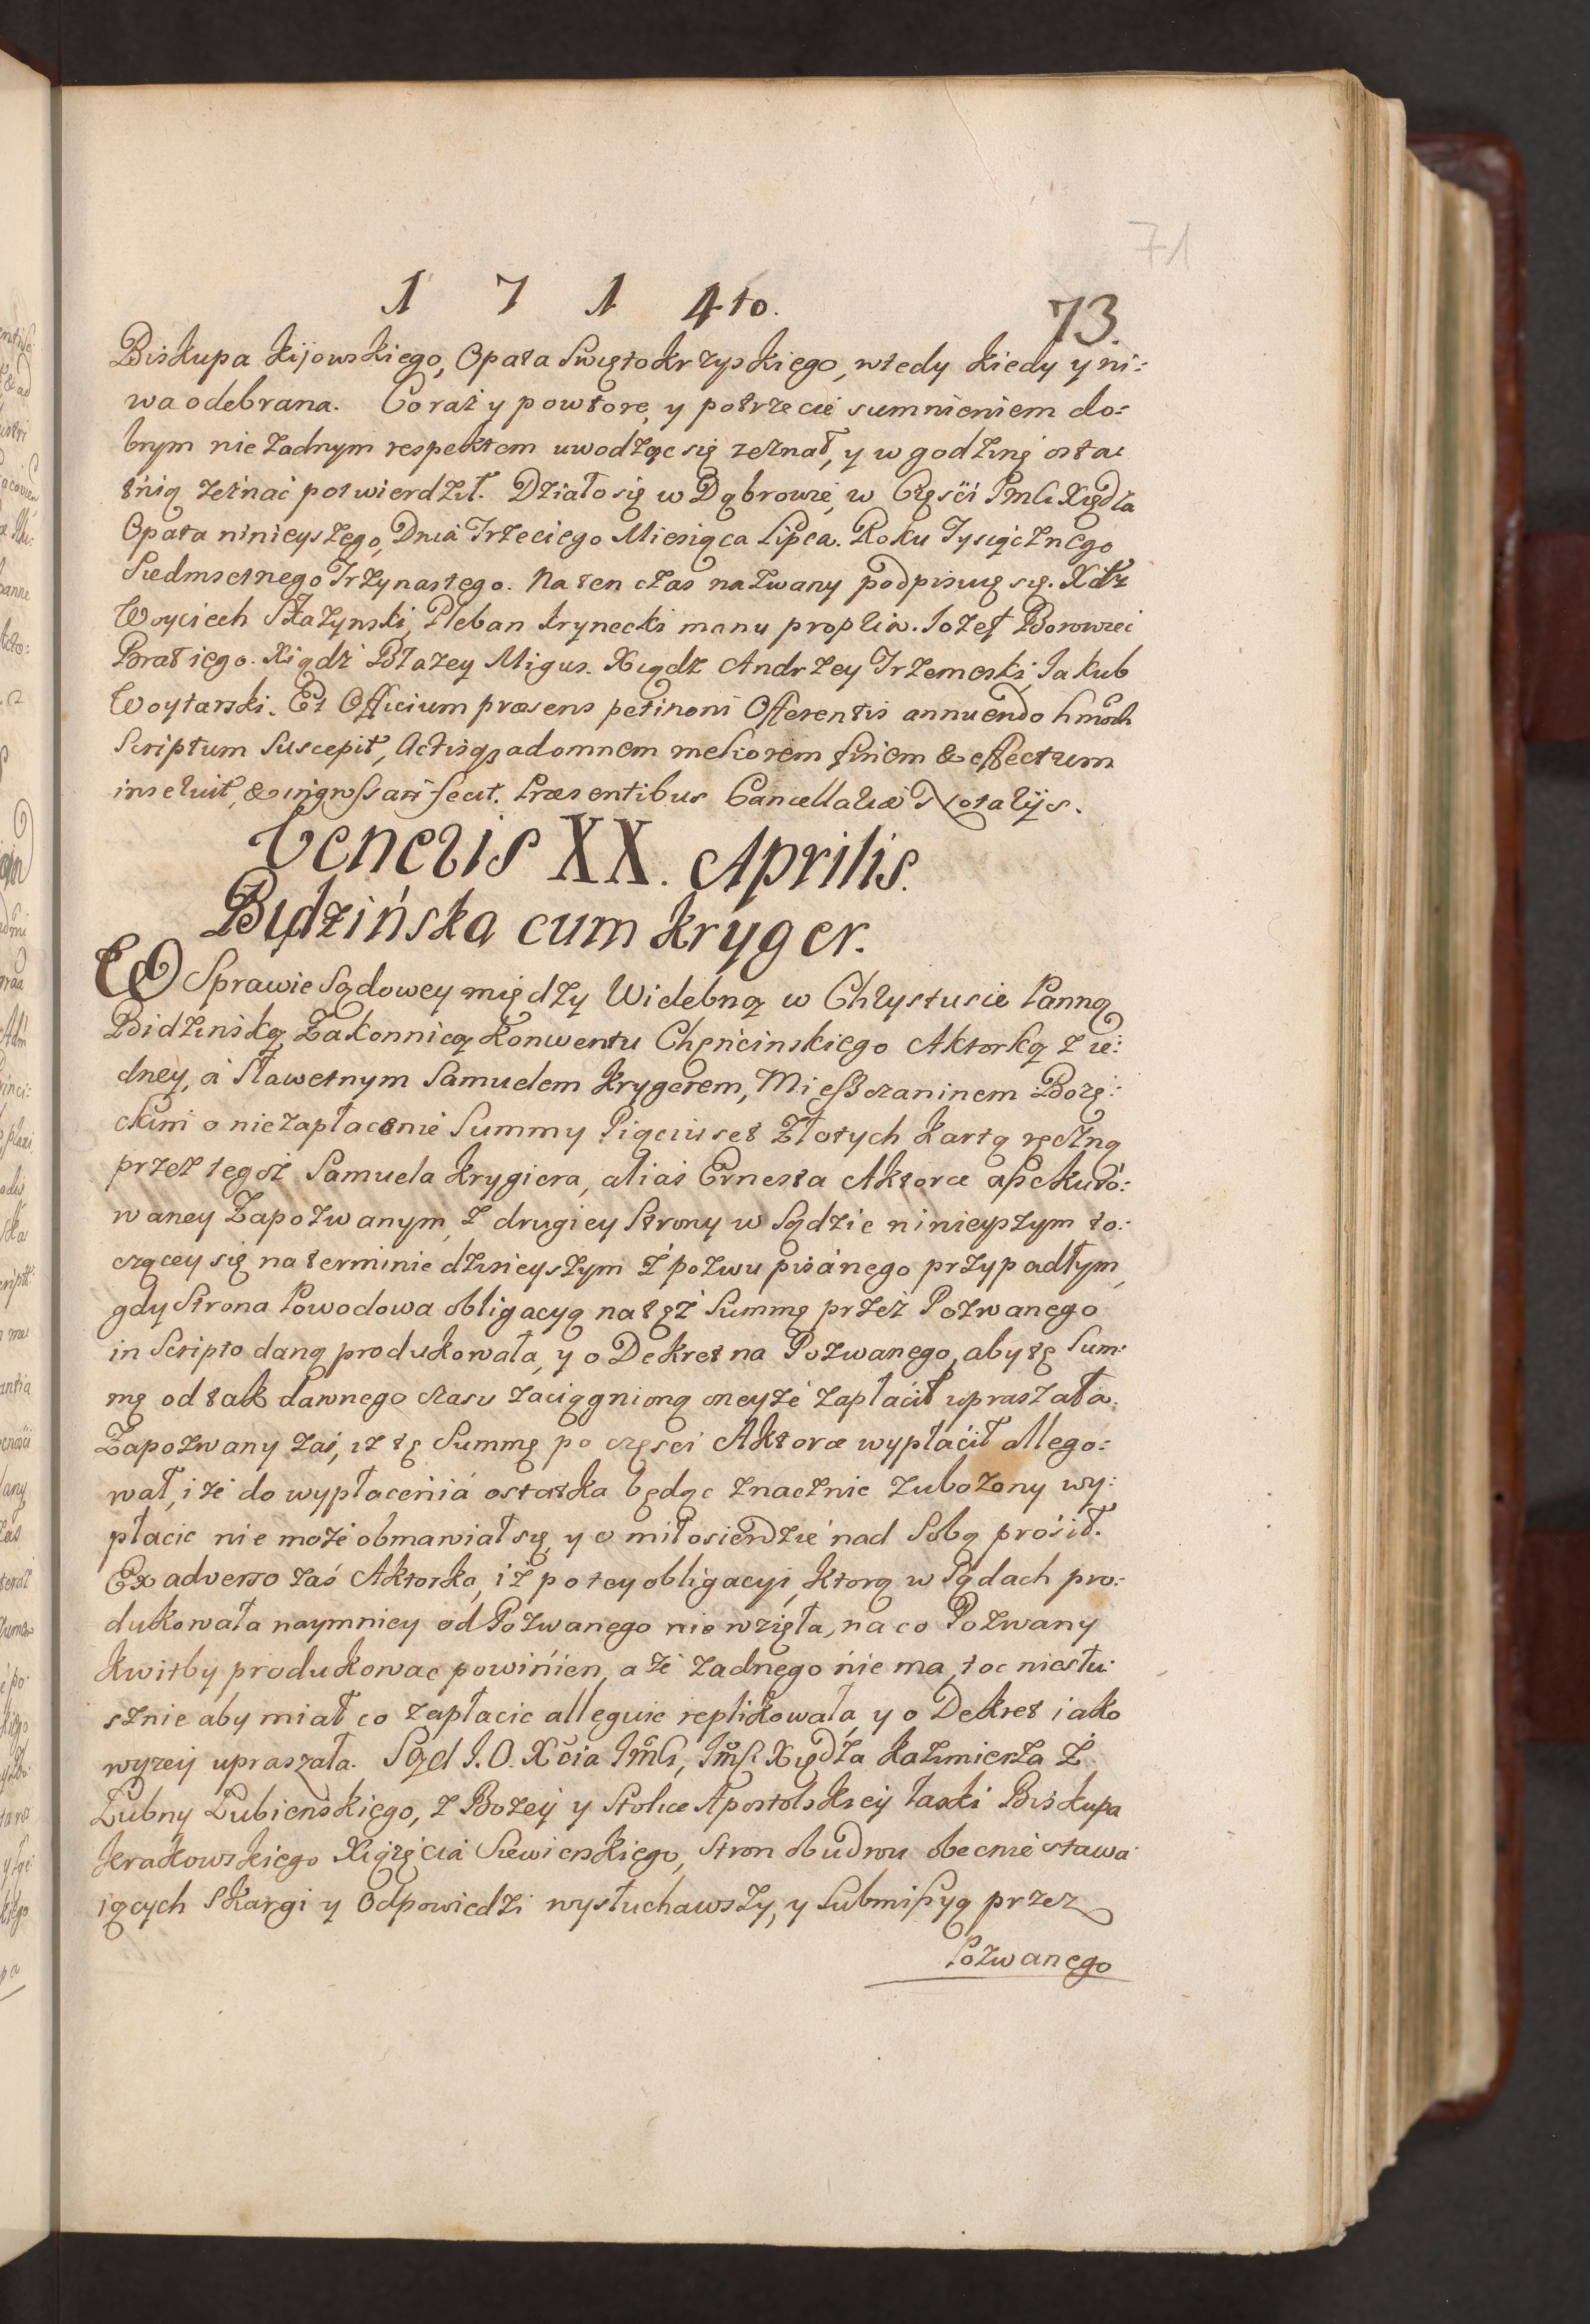 71
1 7 1 4to.
73.
Biskupa Kijowskiego, Opata Swiętokrzyskiego, wtedy kiedy y ni:
wa odebrana. Co raz y powtore, y potrzecie sumnieniem do:
brym nie żadnym respektem uwodząc się zeznał, y w godzinę osta:
tnią zeznać potwierdził. Działo się w Dąbrowie, w Częsci Jmci Xiędza
Opata ninieyszego, Dnia Trzeciego Miesiąca Lipca. Roku Tysiącznego
Siedmsetnego Trzynastego. Na ten czas nazwany podpisuię się. Xdz
Woyciech Stazynski, Pleban krynecki manu propria. Iozef Borowiec
Brat iego. Xiądz Błazey Migus. Xiądz Andrzey Trzemeski, Iakub
Woytarski. Et Officium præsens petitioni Offerentis annuendo hmōi
Scriptum Suscepit, Actisq3 ad omnem meliorem finem & effectum
inseruit, & ingrossari fecit. Præsentibus Cancellariæ Notarijs.
Veneris XX. Aprilis.
Bidzińska cum Kryger.
W Sprawie Sądowey między Widebną w Chrystusie Panną
Bidzinską Zakonnicą Konwentu Chęncinskiego Aktorką z ie:
dney, a Sławetnym Samuelem Krygerem, Miesszczaninem Bozę:
ckim o niezapłacenie Summy Pięciuset Złotych kartą ręczną
przez tegoż Samuela Krygiera, alias Ernesta Aktorce assekuro:
waney Zapozwanym, z drugiey Strony w Sądzie ninieyszym to:
czącey się na terminie dzisieyszym z pozwu pisanego przypadłym,
gdy Strona Powodowa obligacyą na tęż Summę przez Pozwanego
in Scripto daną produkowała, y o Dekret na Pozwanego, aby tę Sum:
mę od tak dawnego czasu zaciągnioną oneyże zapłacił upraszała.
Zapozwany zaś, iz tę Summę po częsci Aktorce wypłacił allego:
wał, i że do wypłacenia ostatka będąc znacznie zubożony wy:
płacic nie może obmawiał się, y o miłosierdzie nad Sobą prosił.
Ex adverso zaś Aktorka, iż po tey obligacyi, ktorą w Sądach pro:
dukowała naymniey od Pozwanego nie wzięła, na co Pozwany
kwitby produkowac powinien, a że żadnego nie ma, toc niesłu:
sznie aby miał co zapłacic alleguie replikowała, y o Dekret iako
wyzey upraszała. Sąd J. O. Xcia Jmci, Jmśc Xiędza Kazimierza z
Łubny Łubienskiego, z Bożey y Stolice Apostolskiey łaski Biskupa
Krakowskiego Xiązęcia Siewierskiego, Stron obudwu obecnie stawa
iących Skargi y Odpowiedzi wysłuchawszy, y Submissyą przez
Pozwanego